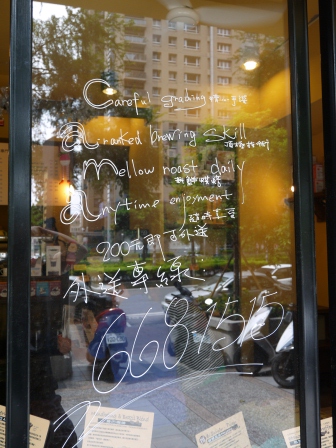 Careful grading 精心手選
a ranked brewing skill
頂級技術
Mellow roast daily
新鮮烘焙
Anytime enjoyment
隨時享受
200元即可外送
外送專線:
668-1515